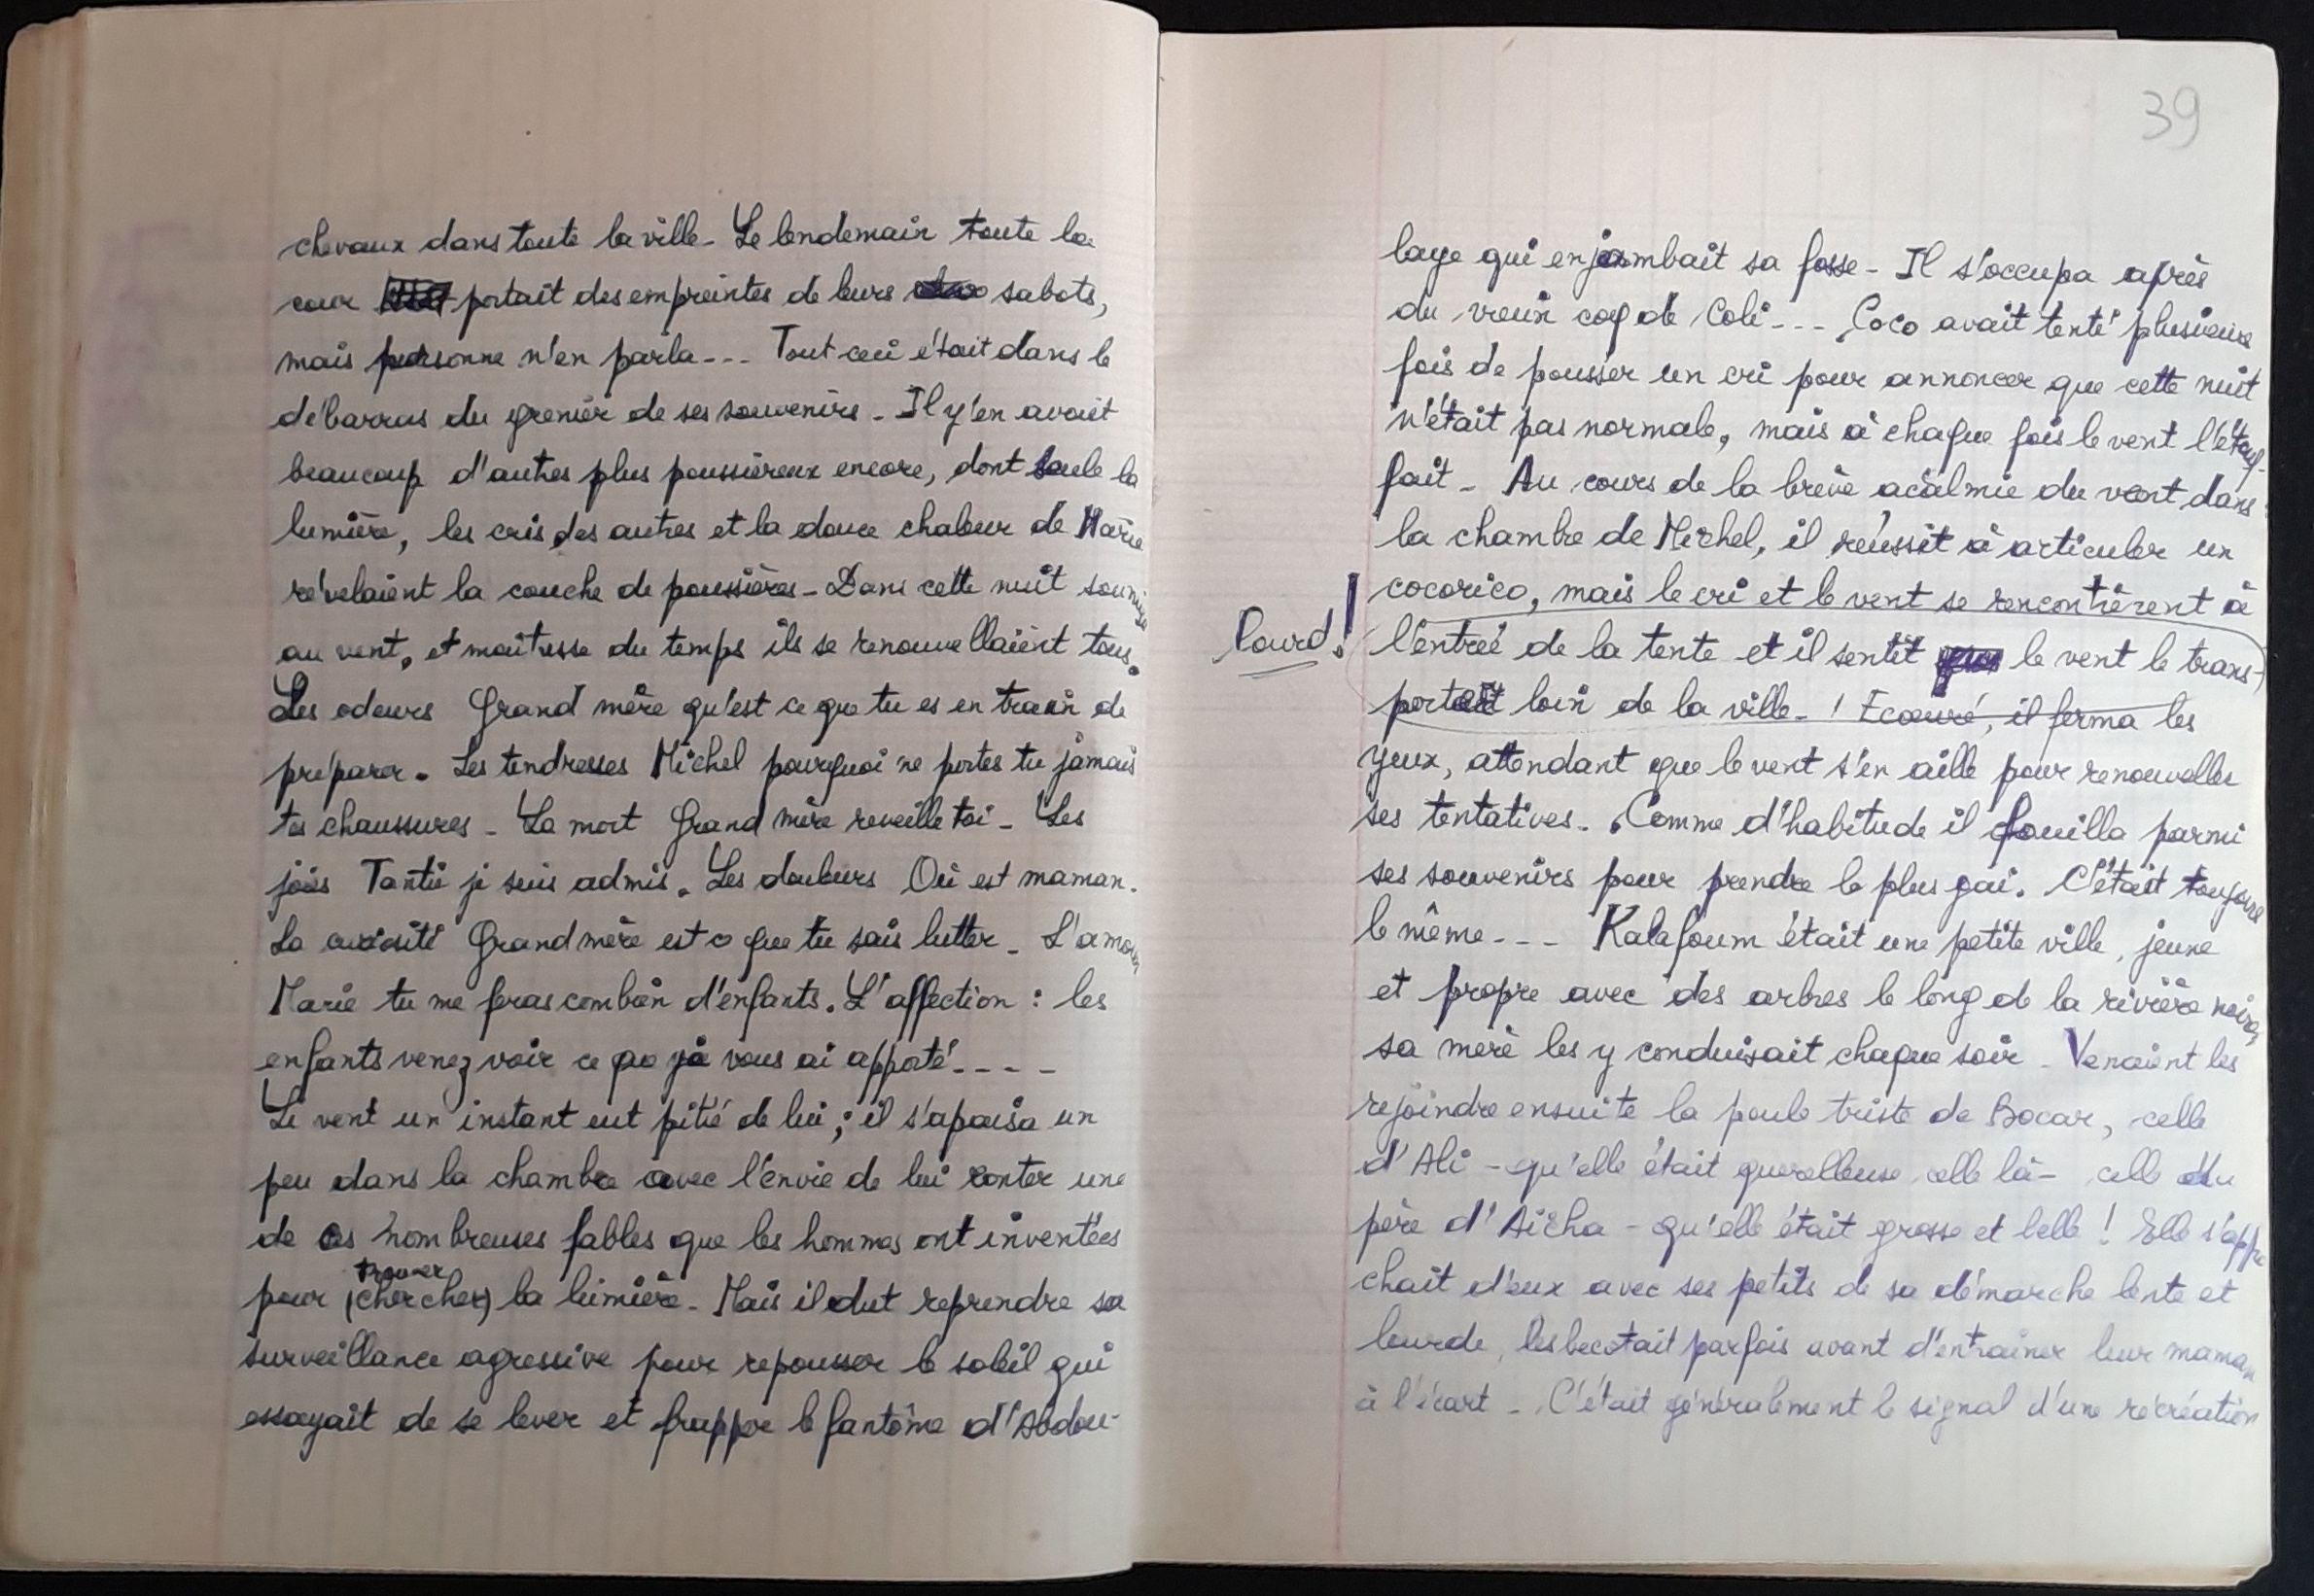 chevaux dans toute la ville - Le lendemain toute la
cour portait des empreintes de leurs sabots,
mais personne n'en parla --- Tout ceci était dans le
débarras du grenier de ses souvenirs - Il y'en avait
beaucoup d'autres plus poussiéreux encore, dont seule la
lumière, les cris des autres et la douce chaleur de Marie
révelaient la couche de poussières - Dans cette nuit soumise
au vent, et maitresse du temps ils se renouvellaient tous.
Les odeurs Grand mère qu'est ce que tu es en train de
préparer. Les tendresses Michel pourquoi ne portes tu jamais
tes chaussures - La mort Grand mère reveille toi - Les
joies Tantie je suis admis. Les douleurs Où est maman.
La curiosité Grand mère est ce que tu sais lutter - L'amour
Marie tu me feras combien d'enfants. L'affection : les
enfants venez voir ce que je vous ai apporté ----
Le vent un instant eut pitié de lui ; il s'apaisa un
peu dans la chambre avec l'envie de lui conter une
de ces nombreuses fables que les hommes ont inventées
trouver
pour (chercher) la lumière - Mais il dut reprendre sa
surveillance agressive pour repousser le soleil qui
essayait de se lever et frapper le fantôme d'Abdou-
39
laye qui enjambait sa fosse - Il s'occupa après
du vieux coq de Coli --- Coco avait tenté plusieurs
fois de pousser un cri pour annoncer que cette nuit
n'était pas normale, mais à chaque fois le vent l'étouf-
fait - Au cours de la brève acalmie du vent dans
la chambre de Michel, il réussit à articuler un
cocorico, mais le cri et le vent se rencontrèrent à
Lourd !
l'entrée de la tente et il sentit le vent le trans-
portait loin de la ville - ! Ecœuré, il ferma les
yeux, attendant que le vent s'en aille pour renouveller
ses tentatives - Comme d'habitude il fouilla parmi
ses souvenirs pour prendre le plus gai. C'était toujours
le même --- Kalafoum était une petite ville, jeune
et propre avec des arbres le long de la rivière noire,
sa mère les y conduisait chaque soir - Venaient les
rejoindre ensuite la poule triste de Bocar, celle
d'Ali - qu'elle était querelleuse celle là - celle du
père d'Aïcha - qu'elle était grosse et belle ! Elle s'appro
chait d'eux avec ses petits de sa démarche lente et
lourde, les becotait parfois avant d'entrainer leur maman
à l'écart - C'était généralement le signal d'une récréation